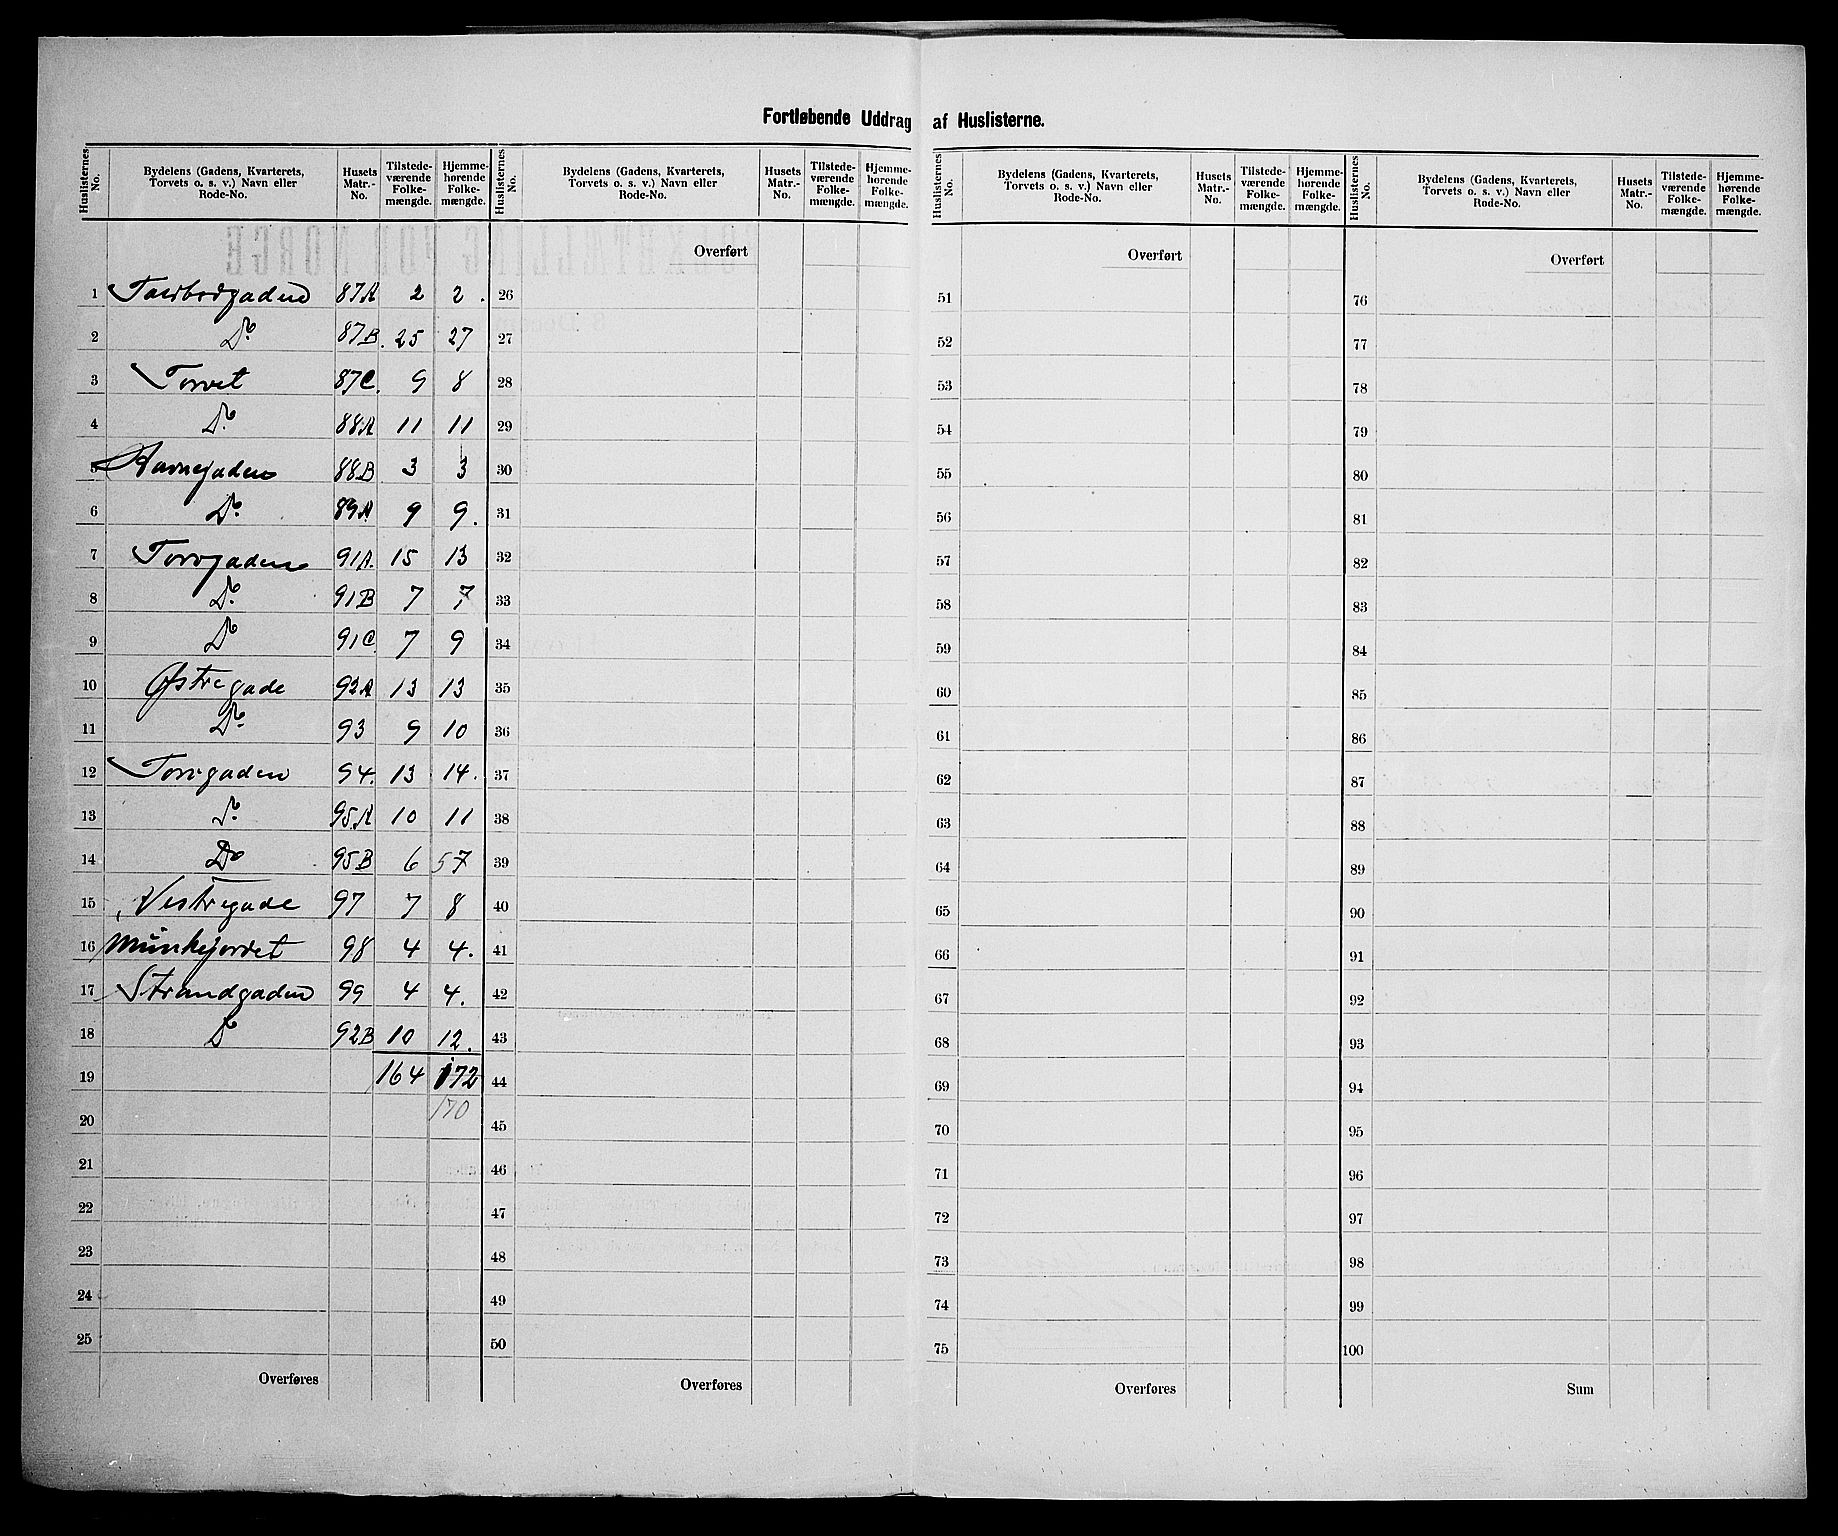 Fortløbende Uddrag af Huslisterne.
Huslisternes No. | Bydelens (Gadens, Kvarterets, Torvets o. s. v.) Navn eller Rode-No. | Husets Matr.-No. | Tilstede-værende Folke-mængde. | Hjemme-hørende Folke-mængde.
Huslisternes No. | Bydelens (Gadens, Kvarterets, Torvets o. s. v.) Navn eller Rode-No. | Husets Matr.-No. | Tilstede-værende Folke-mængde. | Hjemme-hørende Folke-mængde.
Huslisternes No. | Bydelens (Gadens, Kvarterets, Torvets o. s. v.) Navn eller Rode-No. | Husets Matr.-No. | Tilstede-værende Folke-mængde. | Hjemme-hørende Folke-mængde.
Huslisternes No. | Bydelens (Gadens, Kvarterets, Torvets o. s. v.) Navn eller Rode-No. | Husets Matr.-No. | Tilstede-værende Folke-mængde. | Hjemme-hørende Folke-mængde.
Overført Overført Overført
1 87A 2 2. 26 51 76
2 Do 87B. 25 27 27 52 77
3 Torvet 87C. 9 8 28 53 78
4 Do 88A 11 11 29 54 79
5 Havnegaden 88B 3 3 30 55 80
6 Do 89A 9 9. 31 56 81
7 Torvgaden 91A. 15 13 32 57 82
8 Do 91B 7 7 33 58 83
9 Do 91C. 7 9 34 59 84
10 Østregade 92A 13 13 35 60 85
11 Do 93 9 10 36 61 86
12 Torvgaden 94. 13 14. 37 62 87
13 Do 95A 10 11 38 63 88
14 Do 95B 6 57 39 64 89
15 Vestregade 97 7 8 40 65 90
16 Munkejordet 98 4 4. 41 66 91
17 Strandgaden 99 4 4. 42 67 92
18 Do 92B 10 12. 43 68 93
19 164 172 44 69 94
20 170 45 70 95
21 46 71 96
22 47 72 97
23 48 73 98
24 49 74 99
25 50 75 100
Overføres Overføres Overføres Sum